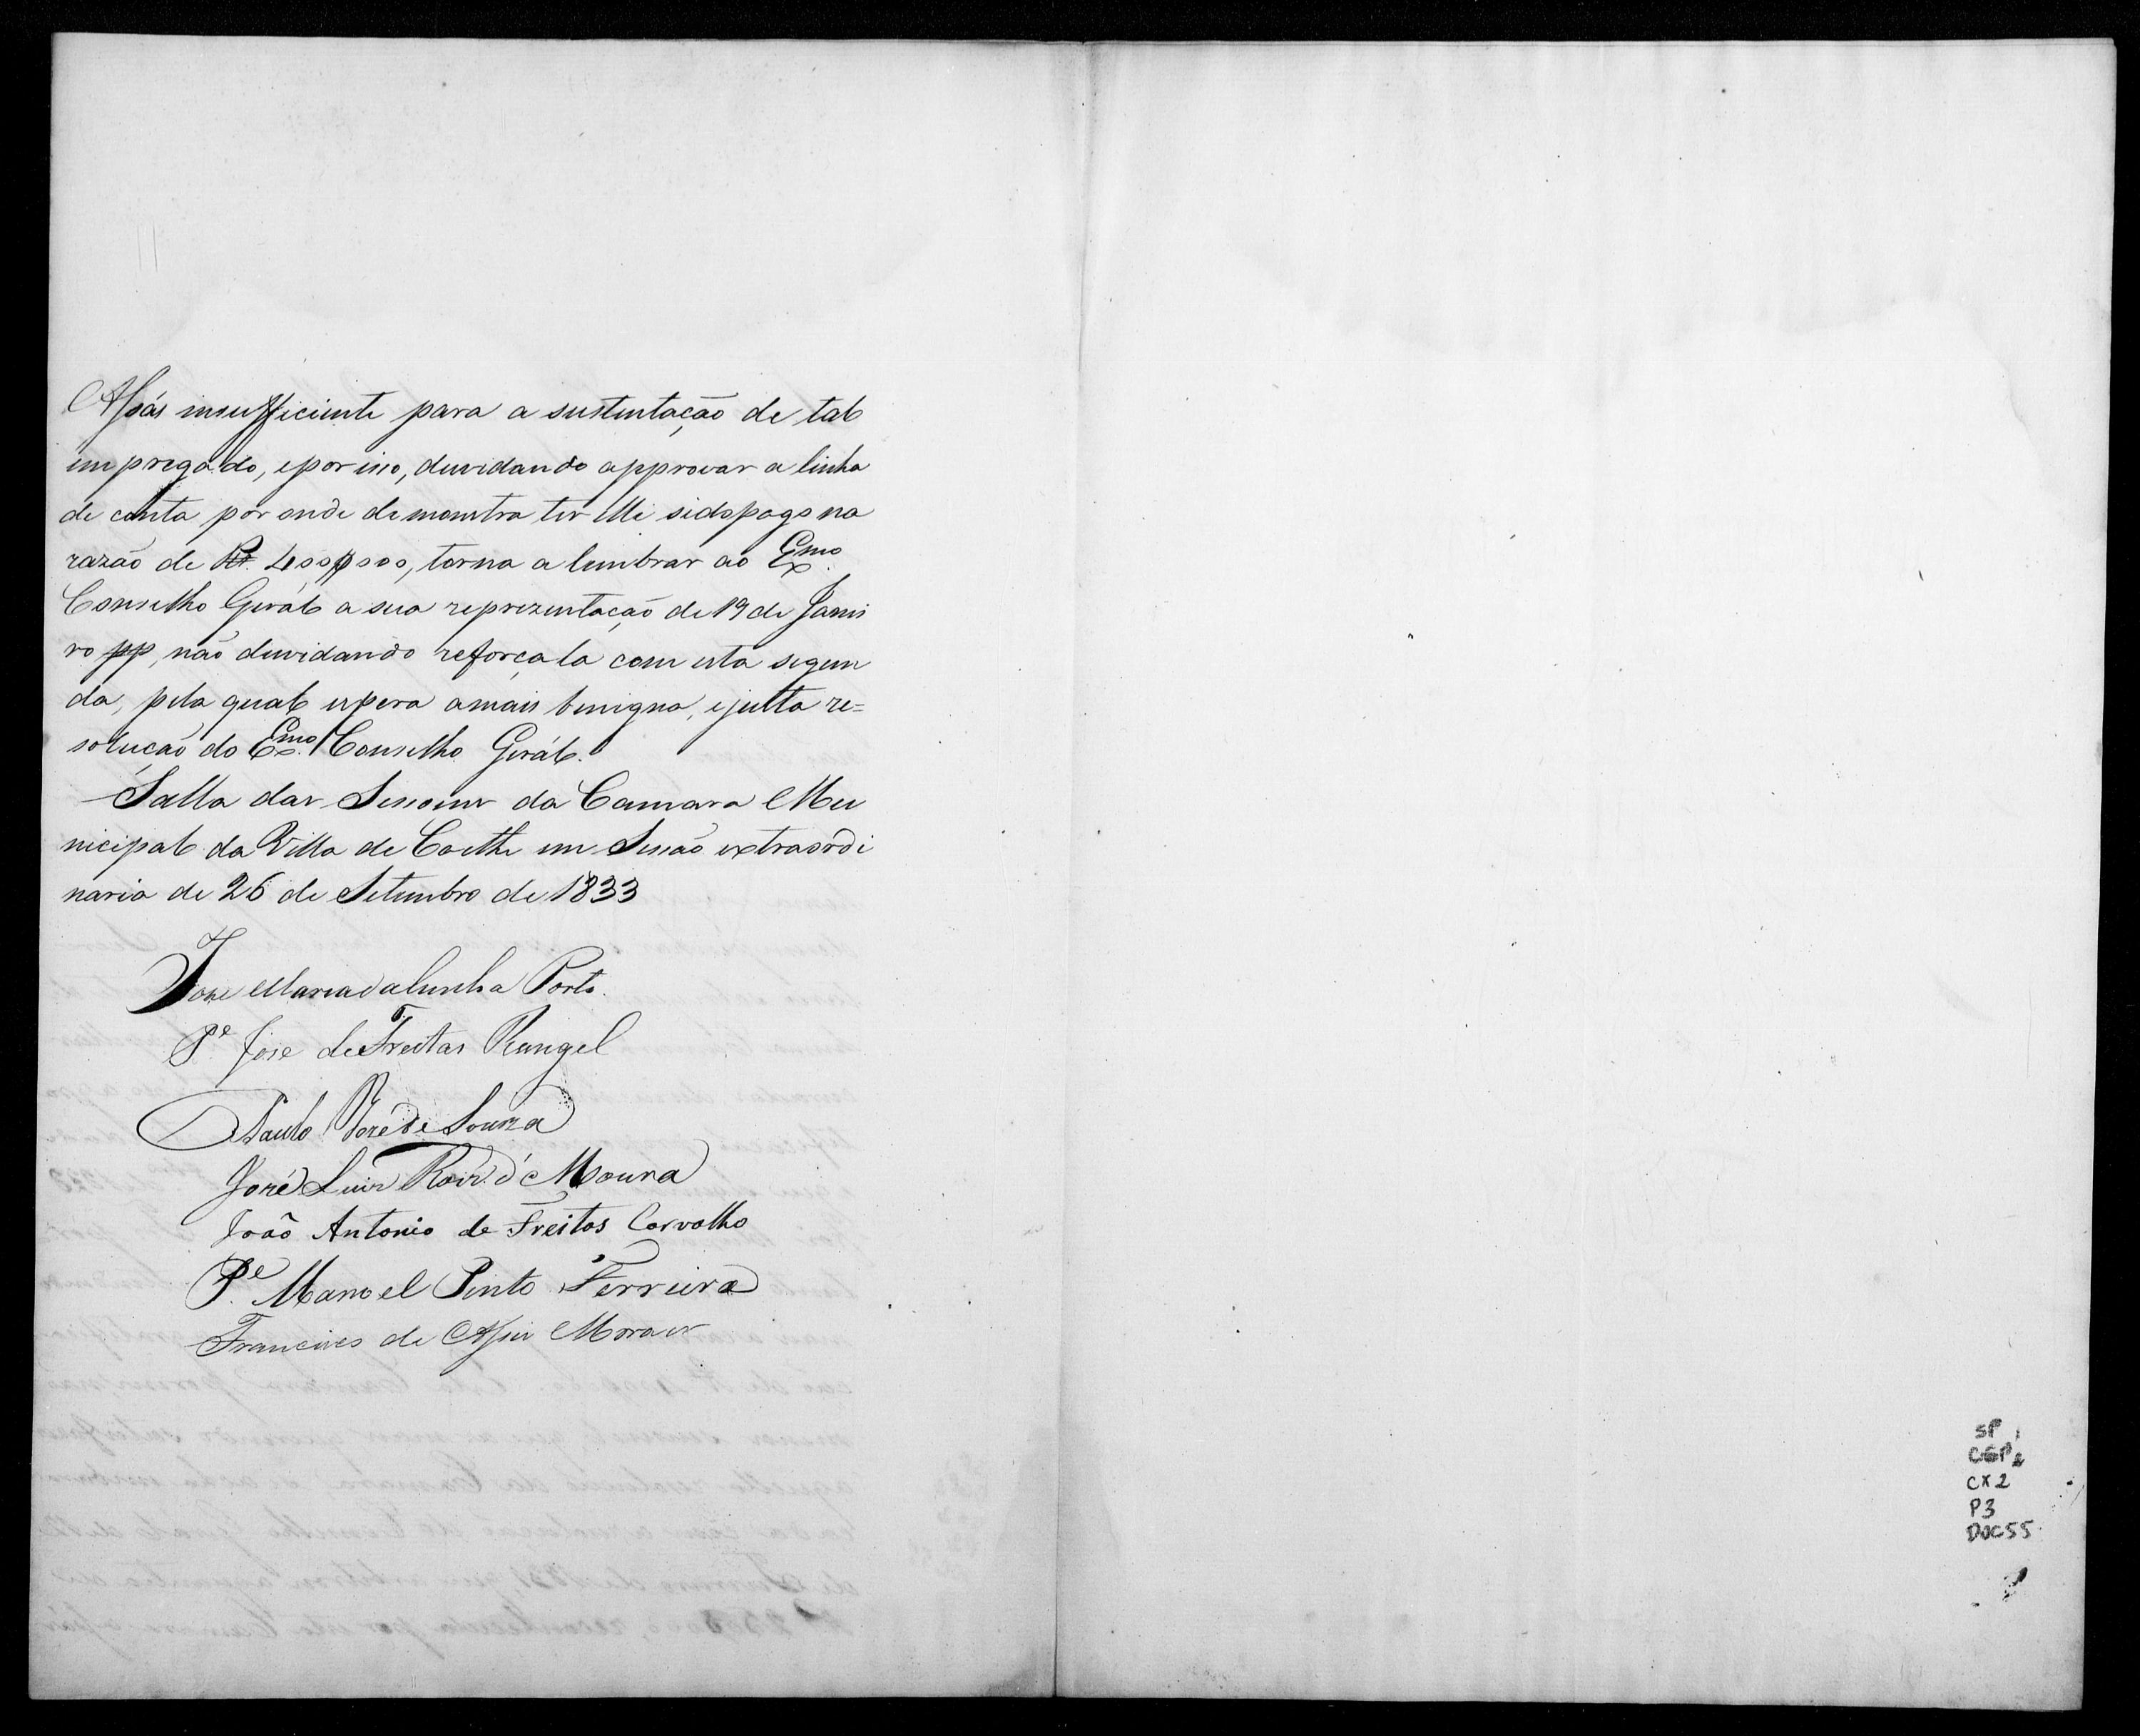 Assás insufficiente para a sustentação de tal
empregado, e por isso, duvidando approvar a linha
de conta por onde demonstra ter lhe sido pago na
razão de Rs. 400$000, torna a lembrar ao Exmo.
Conselho Gerál a sua reprezentação de 19 de Janei
ro pp, não duvidando reforça la com esta segun
da, pela qual espera a mais benigna, e justa re=
solução do Exmo. Conselho Gerál.
Salla das Sessoens da Camara Mu
nicipal da Villa de Coethe em Sessão extraordi
naria de 26 de Setembro de 1833
Jose Maria da Cunha Porto.
Pe. Jose de Freitas Rangel
Paulo José de Souza
José Luiz Roiz. d'e Moura
João Antonio de Freitas Carvalho
Pe. Manoel Pinto Ferreira
Francisco de Assis Moraes
SP
CGP
CX 2
P3
DOC 55